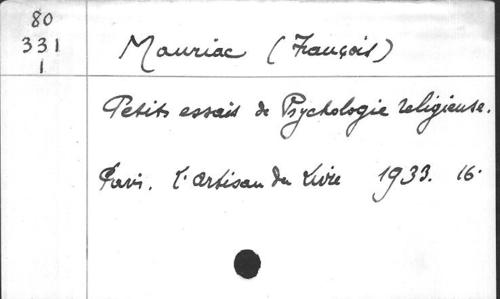 80
331
1
Mauriac (François)
Petits essais de Psychologie religieuse.
Paris. L'Artisan du Livre 1933. 16.